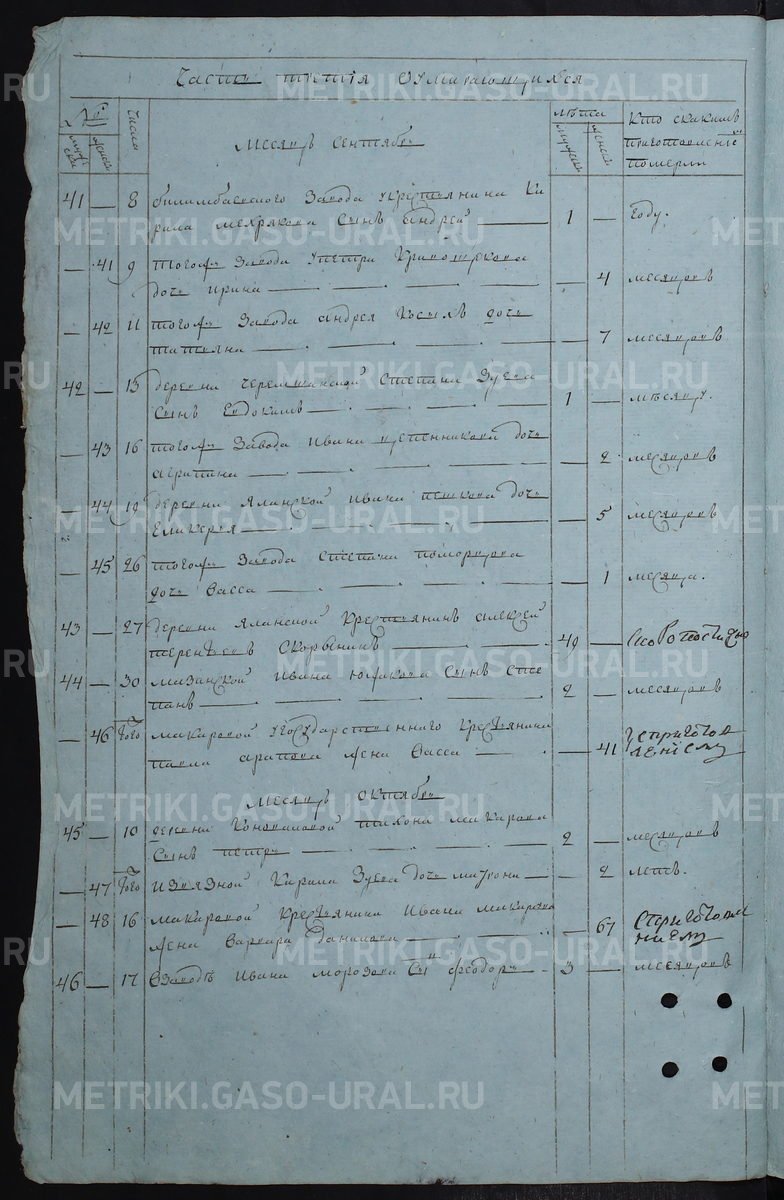 Часть третия оумирающихся
№ Числа лѣта Кто скакимъ
муже женск муже женск приготовленіе
Месяцъ Сентябрь померли
41 — 8 билимбаевского Завода Укрестьянина Ки
рила мехрякова Сынъ Андрей — 1 — году.
— 41 9 тогожъ Завода Упетра Кривощекова
дочь ирина — — 4 месяцовъ
— 42 11 тогожъ Завода андрея Косыхъ дочь
татьяна — — 7 месяцовъ
42 — 15 деревни черемшанской Степана Зуева
Сынъ Евдокимъ — 1 — мѣсяцу.
— 43 16 тогожъ Завода Ивана дочь
агрипина — — 2 месяцовъ
— 44 19 деревни Яланской ивана пешкова дочь
Гликерея — — 5 месяцовъ
— 45 26 тогожъ Завода Степана поморцова
дочь Васса — — 1 месяца.
43 — 27 деревни Яланской Крестьянинъ алексей
терентьевъ Скорынинъ — 49 — Скоропостижно
44 — 30 Ивана южакова Сынъ Сте
панъ — 2 — месяцовъ
— 46 того макаровой Государственного Крестьянина
павла арапова жена Васса — — 41 Спригтов
лениемъ
Месяцъ октябрь
45 — 10 деревни Коноваловой тихона макарова
Сынъ петръ — 2 — месяцовъ
— 47 того Извязной Кирила Зуева дочь матрона — — 2 летъ.
— 48 16 макаровой Крестьянина Ивана макарова
жена Варвара Данилова — — 67 Сприготовле
ниемъ
46 — 17 Взаводѣ Ивана морозова Сынъ феодоръ — 3 — месяцовъ
METRIKI.GASO-URAL.RU